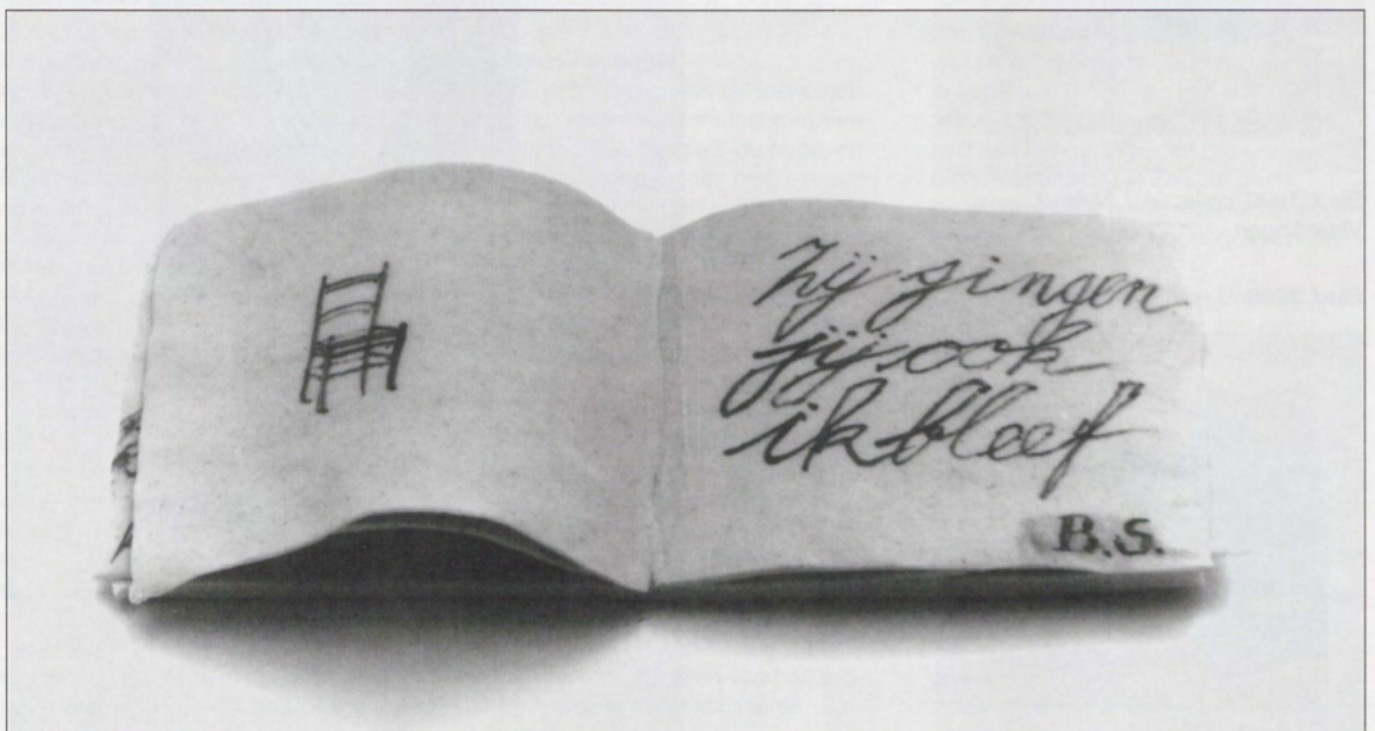 Zij gingen
jij ook
ik bleef
B.S.